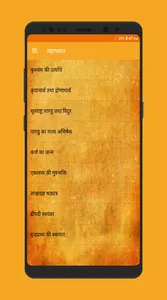 महाभारत
कुरुवंश की उत्पत्ति
कृपाचार्य तथा द्रोणाचार्य
धृतराष्ट्र पाण्डु तथा विदुर
पाण्डु का राज्य अभिषेक
कर्ण का जन्म
एकलव्य की गुरुभक्ति
लाक्षागृह षड्यंत्र
द्रौपदी स्वयंवर
इन्द्रप्रस्थ की स्थापना